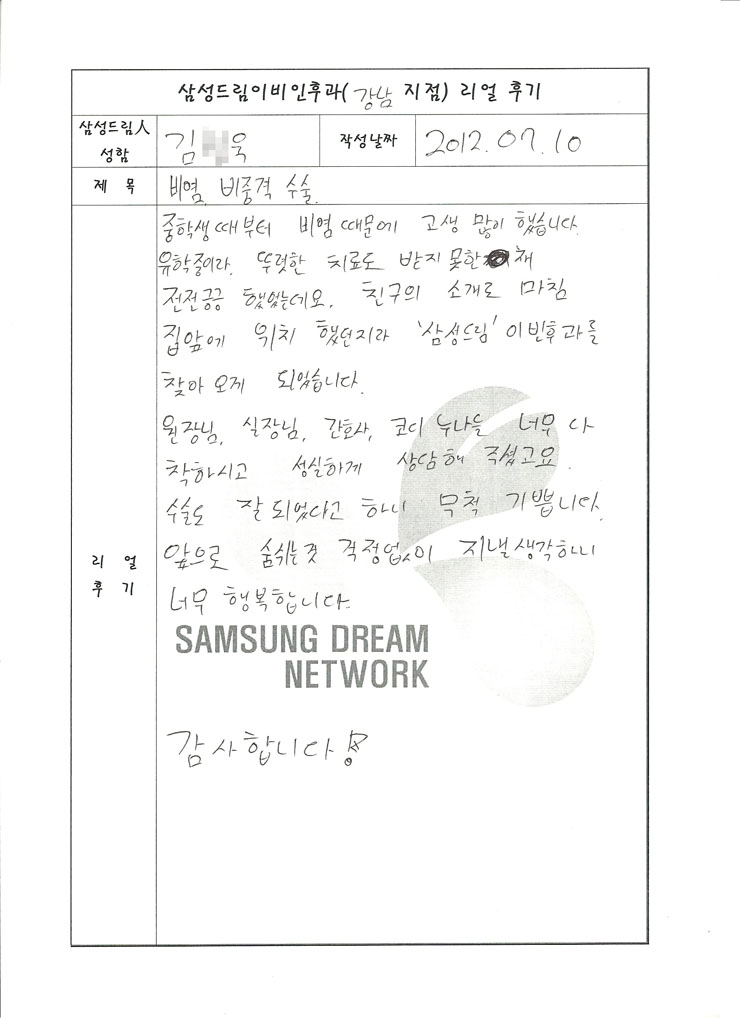 삼성드림이비인후과(강남 지점) 리얼 후기
삼성드림人 성함
김 욱
작성날짜
2012.07.10
제 목
비염, 비중격 수술.
리 얼 후 기
중학생때부터 비염때문에 고생 많이 했습니다.
유학중이라. 뚜렷한 치료도 받지 못한 채
전전긍긍 했었는데요. 친구의 소개로 마침
집앞에 위치 했던지라 '삼성드림' 이빈후과를
찾아 오게 되었습니다.
원장님, 실장님, 간호사, 코디 누나들 너무 다
착하시고 성실하게 상담해 주셨고요.
수술도 잘 되었다고 하니 무척 기쁩니다.
앞으로 숨쉬는것 걱정없이 지낼생각하니
너무 행복합니다.
SAMSUNG DREAM
NETWORK
감사합니다!